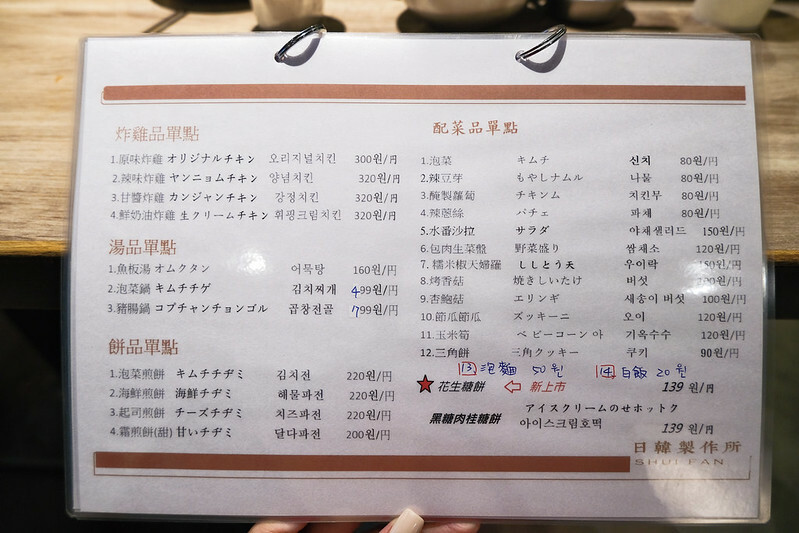 炸雞品單點
1.原味炸雞 オリジナルチキン 오리지널치킨 300원/円
2.辣味炸雞 ヤンニョムチキン 양념치킨 320원/円
3.甘醬炸雞 カンジャンチキン 강정치킨 320원/円
4.鮮奶油炸雞 生クリームチキン 휘핑크림치킨 320원/円
湯品單點
1.魚板湯 オムクタン 어묵탕 160원/円
2.泡菜鍋 キムチチゲ 김치찌개 499원/円
3.豬腸鍋 コプチャンチョンゴル 곱창전골 799원/円
餅品單點
1.泡菜煎餅 キムチチヂミ 김치전 220원/円
2.海鮮煎餅 海鮮チヂミ 해물파전 220원/円
3.起司煎餅 チーズチヂミ 치즈파전 220원/円
4.霜煎餅(甜) 甘いチヂミ 달다파전 200원/円
配菜品單點
1.泡菜 キムチ 신치 80원/円
2.辣豆芽 もやしナムル 나물 80원/円
3.醃製蘿蔔 チキンム 치킨무 80원/円
4.辣蔥絲 パチェ 파채 80원/円
5.水番沙拉 サラダ 야채샐러드 150원/円
6.包肉生菜盤 野菜盛り 쌈채소 120원/円
7.糯米椒天婦羅 ししとう天 우이락 150원/円
8.烤香菇 焼きしいたけ 버섯 원/円
9.杏鮑菇 エリンギ 새송이 버섯 100원/円
10.節瓜節瓜 ズッキーニ 오이 120원/円
11.玉米筍 ベビーコーン ア 기옥수수 120원/円
12.三角餅 三角クッキー 쿠키 90원/円
13 泡麵 50원 14 白飯 20원
花生糖餅 新上市 139 원/円
黑糖肉桂糖餅 アイスクリームのせホットク
아이스크림호떡 139 원/円
日韓製作所
SHUI FAN